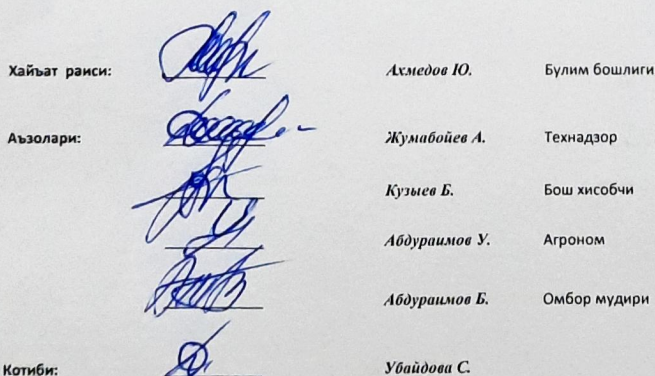 Хайъат раиси: Ахмедов Ю. Булим бошлиги
Аъзолари: Жумабойев А. Технадзор
Кузыев Б. Бош хисобчи
Абдураимов У. Агроном
Абдураимов Б. Омбор мудири
Котиби: Убайдова С.